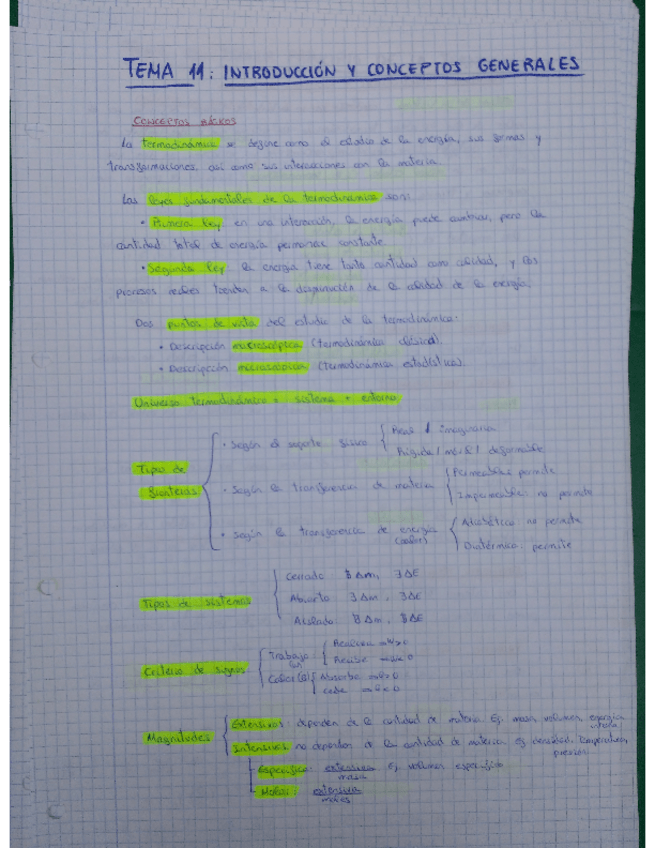 TEMA 11: INTRODUCCIÓN Y CONCEPTOS GENERALES
CONCEPTOS BÁSICOS
La termodinámica se define como el estudio de la energía, sus formas y
transformaciones, así como sus interacciones con la materia.
Las leyes fundamentales de la termodinámica son:
• Primera ley: en una interacción, la energía puede cambiar, pero la
cantidad total de energía permanece constante.
• Segunda ley: la energía tiene tanto cantidad como calidad, y los
procesos reales tienden a la disminución de la calidad de la energía.
Dos puntos de vista del estudio de la termodinámica:
• Descripción macroscópica (termodinámica clásica).
• Descripción microscópica (termodinámica estadística).
Universo termodinámico = sistema + entorno
Tipos de fronteras
• Según el soporte físico
Real / imaginaria
Rígida / móvil / deformable
• Según la transferencia de materia
Permeable: permite
Impermeable: no permite
• Según la transferencia de energía (calor)
Adiabática: no permite
Diatérmica: permite
Tipos de sistemas
Cerrado ∄ Δm, ∃ ΔE
Abierto ∃ Δm, ∃ ΔE
Aislado ∄ Δm, ∄ ΔE
Criterio de signos
Trabajo
Recibe
Calor (Q)
Absorbe → Q>0
cede → Q<0
Magnitudes
Extensivas: dependen de la cantidad de materia. Ej. masa, volumen, energía interna
Intensivas: no dependen de la cantidad de materia. Ej. densidad, temperatura, presión
Específica: extensiva / masa Ej. volumen específico
Molar: extensiva / moles